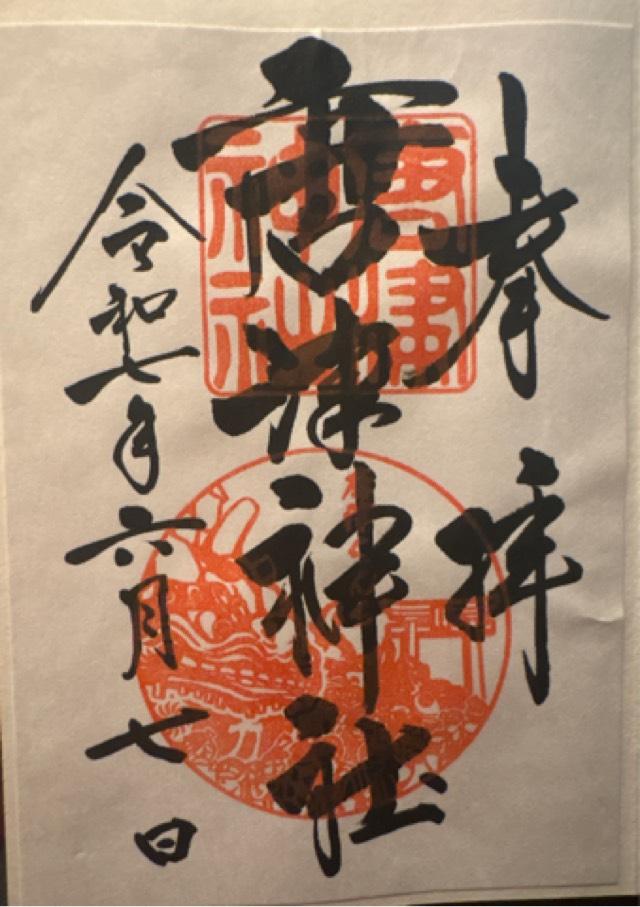 奉拝
唐津神社
唐津
神社
令和七年六月七日